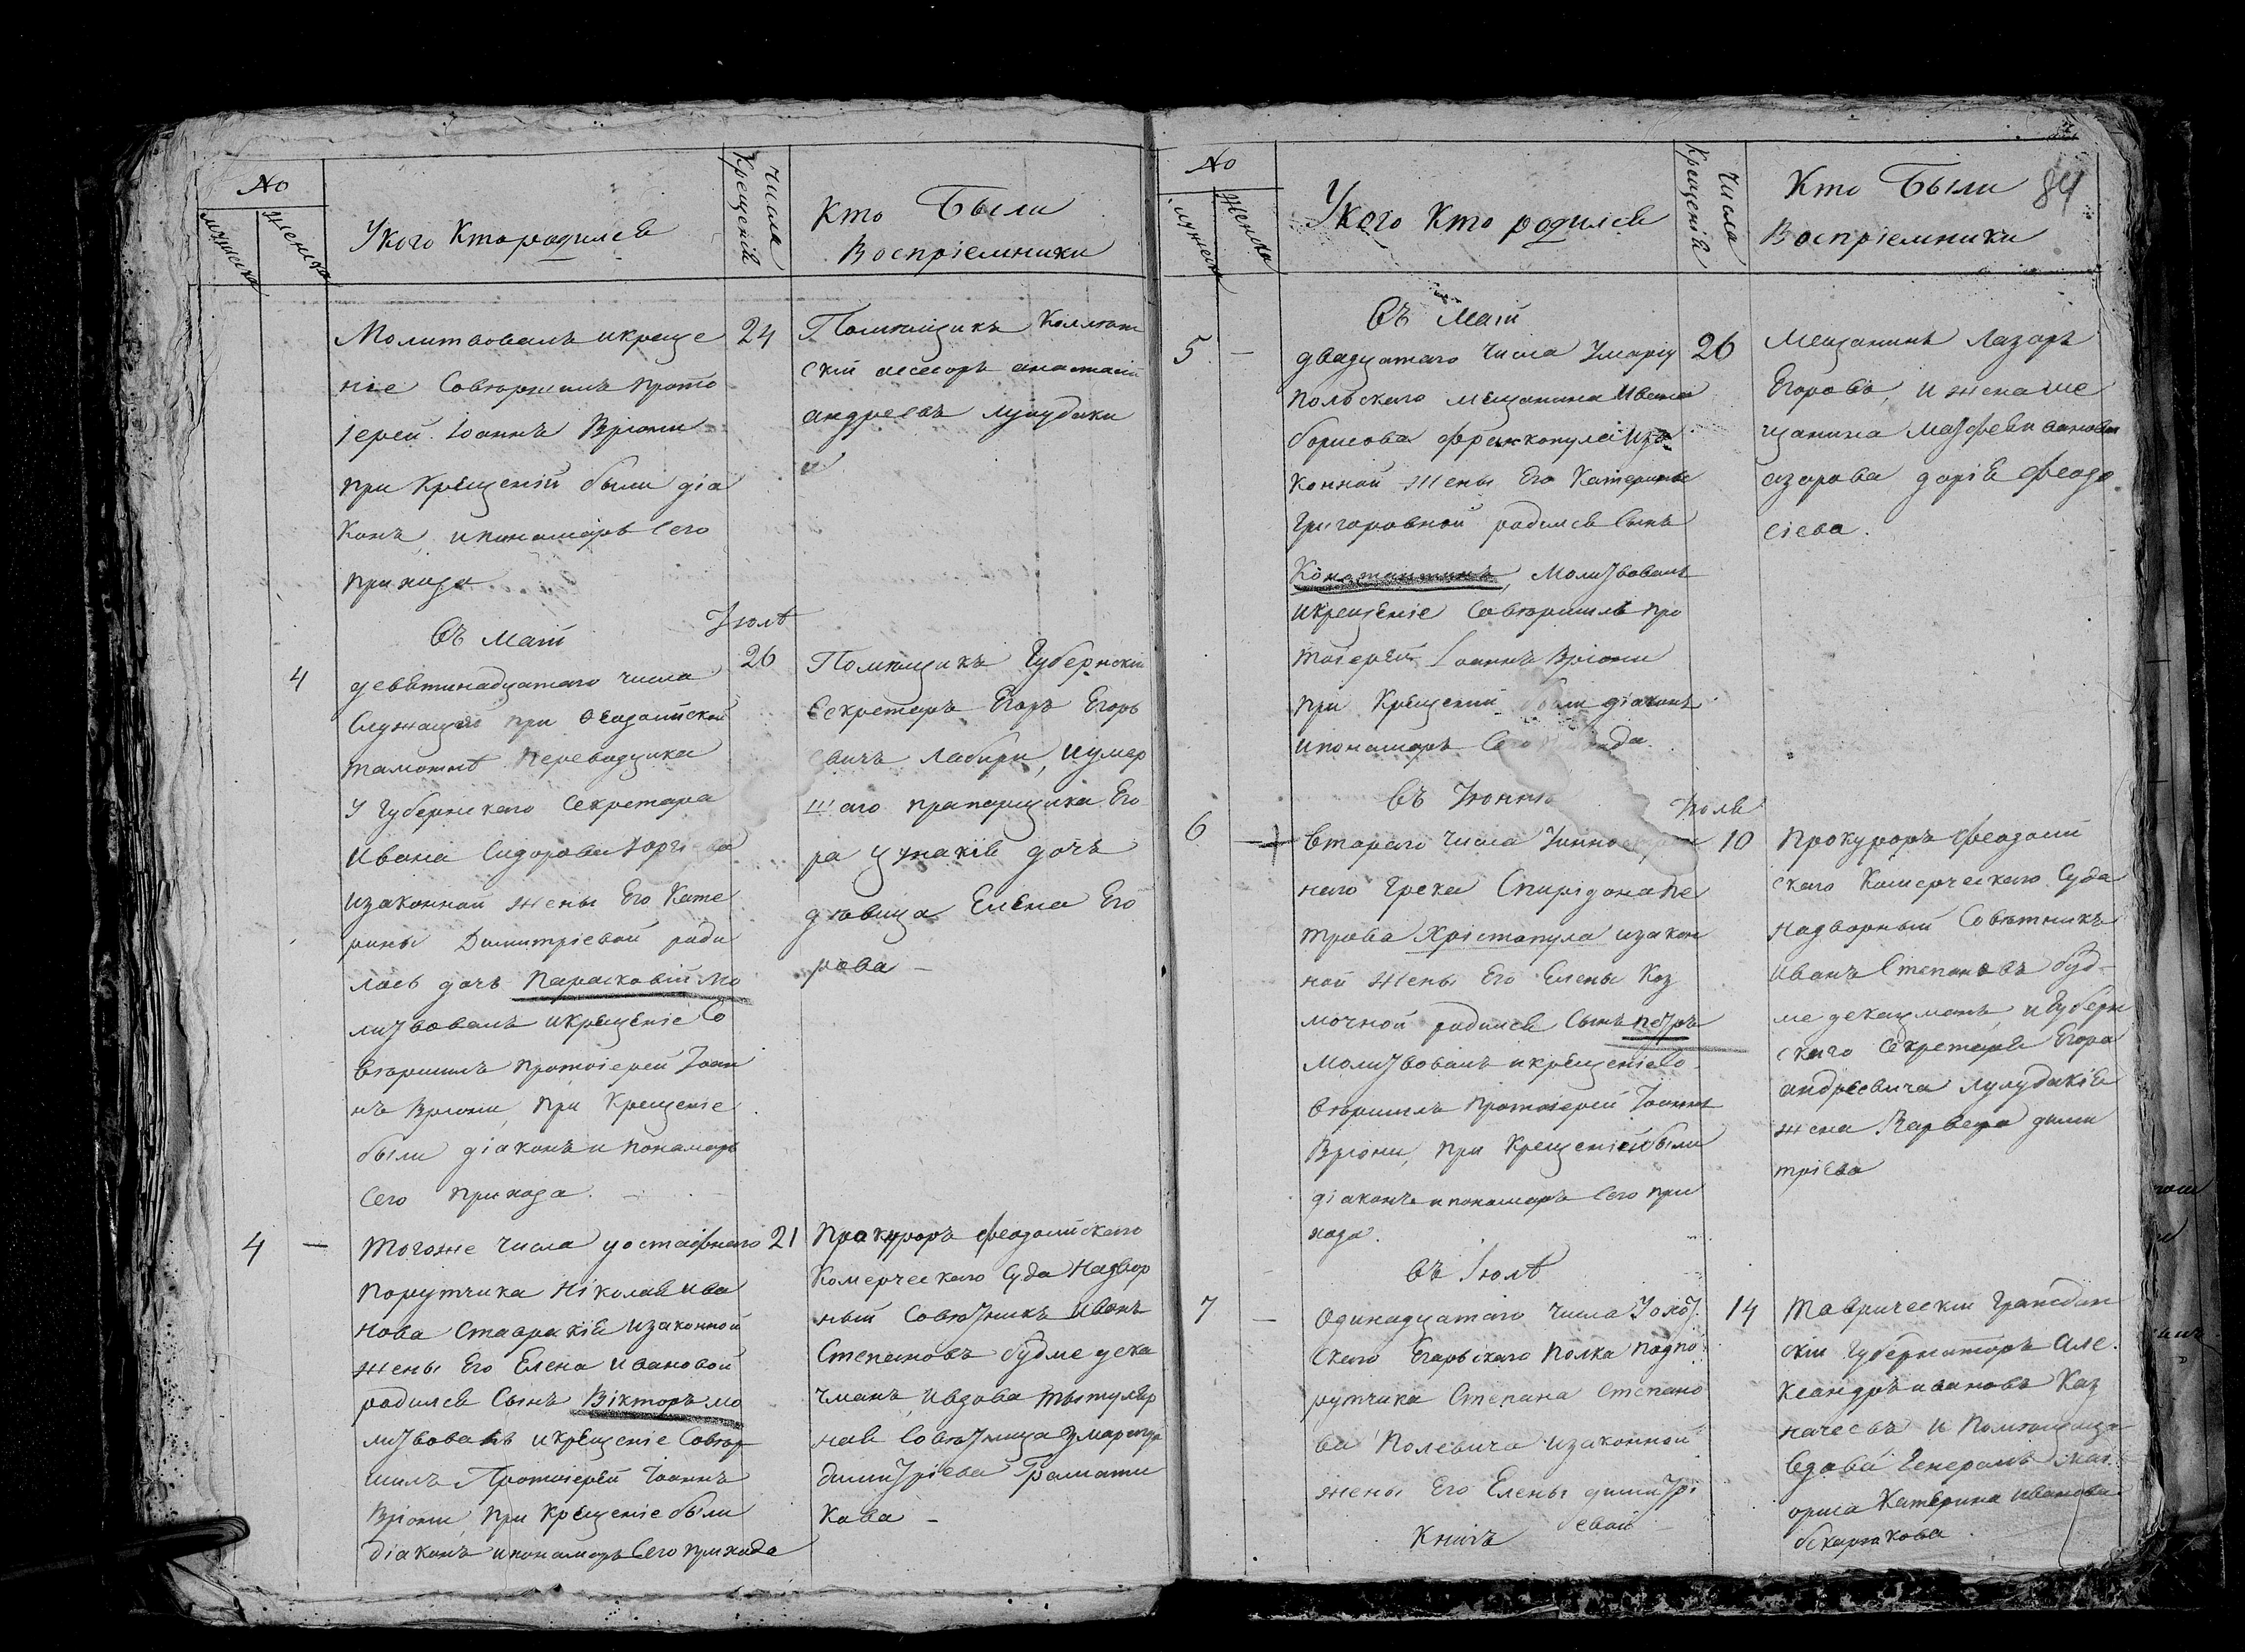 No
мужеска
женска
Укого Кто родился
числа
Крещенія
Кто Были
Воспріемники
Молитвовалъ икреще
24
ніе Совершилъ прото
іерей Іоаннъ Вріони
при Крещеніи были діа
конъ, ипономарь Сего
прихода
Помещикъ Коллеж
скій асесоръ анастасій
андреевъ Лулудаки
и
Въ маіи
4
девятинадцатаго числа
Служащаго при Феодосійской
таможне переводчика
у Губернскаго Секретара
Ивана Сидорова
изаконной жены Его Кате
рины Димитріевой роди
лась дочь Парасковіи мо
литвовалъ икрещеніе Со
вершилъ протоіерей Іоан
нъ Вріони, при Крещеніе
были діаконъ и пономарь
Сего прихода.
Іюля
26
Помещикъ Губернскій
Секретаръ Егоръ Егоро
вичъ Лабири, иумер
шаго прапорщика Его
ра дочь
девица Елена Его
рова –
4 –
тогоже числа уоставнаго
Порутчика Ніколая Ива
нова Ставракія изаконной
жены Его Елена ивановой
родился Сынъ Вікторъ мо
литвовалъ икрещеніе Совер
шилъ Протоіерей Іоаннъ
Вріони, при Крещеніе были
діаконъ ипономарь Сего прихода
21
Прокуроръ феодосійскаго
Комерческаго Суда Надвор
ный Советникъ Иванъ
Степановъ
ивдова тытуляр
ная Советница
димитріева Грамати
кова –
No
мужеска
женска
Укого Кто родился
числа
Крещенія
Кто Были
Воспріемники
84
Въ Маіи
5 –
двадцатаго числа Умаріу
польскаго мещанина Ивана
борисова франкопула изъ
конной жены Его Катерины
Григоровной родился Сынъ
Константинъ, молитвовалъ
икрещеніе Совершилъ про
тоіерей Іоаннъ Вріони
при Крещеніи были діаконъ
ипономарь Сего прихода
26
Мещанинъ Лазарь
Егоровъ, и жена ме
щанина
азарова даріе феодо
сіева.
Въ Іюнію
6 –
втораго числа Уинностран
наго Грека Спирідона Пе
трова Хрістопула изакон
ной жены Его Елены Коз
мочной родился Сынъ петръ
молитвовалъ икрещеніе Со
вершилъ протоіерей Іоаннъ
Вріони, при Крещеніеи были
діаконъ ипономаръ Сего при
хода.
Іюля
10
Прокуроръ феодосіи
скаго Комерческаго Суда
Надворный Советникъ
Иванъ Степановъ буд
и Губерн
скаго Секретаря Егора
андреевича Лулудакіе
жена Варвара дими
тріева
въ Іюля
7 –
Одинадцатаго числа
скаго Егарьскаго Полка подпо
рутчика Степана Степано
ва Полевича изаконной
жены Его Елены димитрі
евой
Князь
14
Таврическіи Граждан
скіи Губернаторъ Але
ксандръ ивановъ Каз
начеевъ и Помещица
вдова Генералъ Маі
орша Катерина Иванова